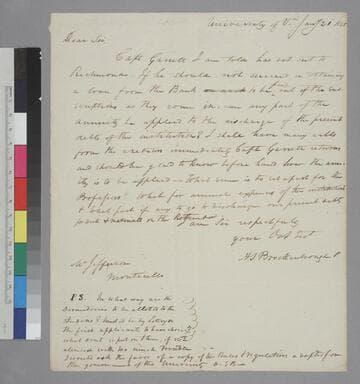 University of Va. Jany 21 1825
Dear Sir,
Capt Garrett I am told has set out to
Richmond. If he should not succeed in obtaining
a loan from the Bank out of the sub
scriptions as they come in. can any part of the
annuity be applied to the discharge of the present
debts of the institution? I shall have many calls
from the creditors immediately Capt Garrett returns
and should be glad to know before hand how the annu
ity is to be applied — What sum is to be kept for the
Professors What for annual expenses of the institution
& what part if any to go to discharge our present debts
for work & materials on the Rotunda
I am Sir respectfully
your Obt Svt
A S Brockenbrough P.
Mr Jefferson
Monticello
P.S. In what way are the
Dormitories to be allotted to the
Students? Shall it be by lottery or
the first applicants to have choice
what rent is put on them, if not
I would ask the favor of a copy of the Rules & regulations adopted for
the government of the University A.S.B.